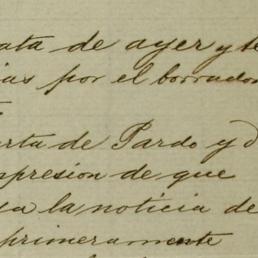 ata de ayer y te
ias por el borrador
arta de Pardo y d
mpresion de que
la noticia de
primeramente